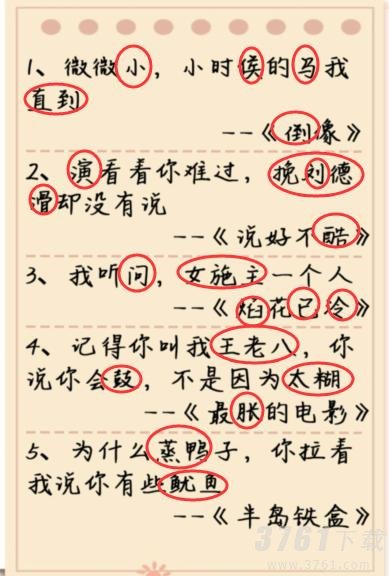 1、微微小，小时侯的马我
直到
--《倒像》
2、演看看你难过，挽刘德
滑却没有说
--《说好不酷》
3、我听问，女施主一个人
--《焰花已冷》
4、记得你叫我王老八，你
说你会鼓，不是因为太糊
--《最胀的电影》
5、为什么蒸鸭子，你拉看
我说你有些鱿鱼
--《半岛铁盒》
3761下载
www.3761.com